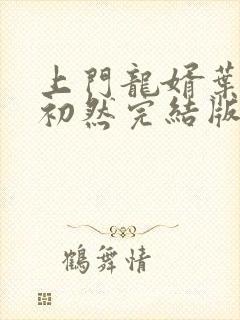 上門龍婿葉
初然完結版
鶴舞情